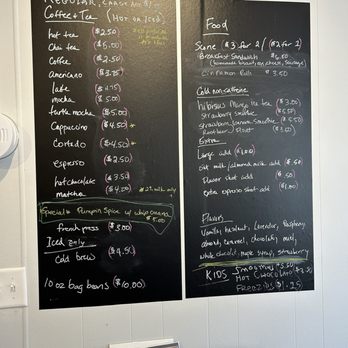 Coffee + Tea (HOT or ICED)
hot tea $2.50
Chai tea $5.00
Coffee $2.50
americano $3.75
latte $4.75
mocha $5.00
turtle mocha $5.00
Cappuccino $4.50 *
Cortado $4.50 *
espresso $2.50
hot chocolate $3.50
matcha $4.00
Special * Pumpkin Spice w/ whip cream $5.00
french press $3.00
Iced only
cold brew $4.50
10 oz bag beans $10.00
Food
Scone ($3 for 2 /
Breakfast Sandwich
Cinnamon Rolls 3.50
Cold noncaffeine
hibiscus Mango Ice tea $3.00
Strawberry smoothie
Strawberry banana Smoothie
Root beer Float $3.50
Extra
Large add $1.00
oat milk / almond milk add $.50
Flavor shot add $.50
extra espresso shot add $1.00
Flavors
Vanilla, hazelnut, lavender, Raspberry
almond, caramel, chocolate, mint,
white chocolate, maple syrup, strawberry
KIDS Smoothies
HOT CHOCOLATE